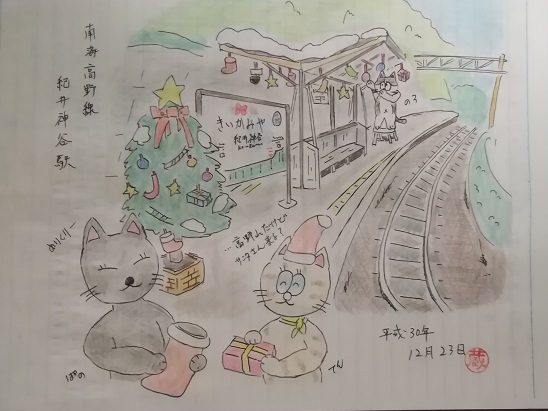 南海高野線
紀伊神谷駅
きいかみや
紀伊神谷
のろ
めりくりー
…高野山だけど
サンタさん来る?
ぱの
てん
平成30年
12月23日
蔵